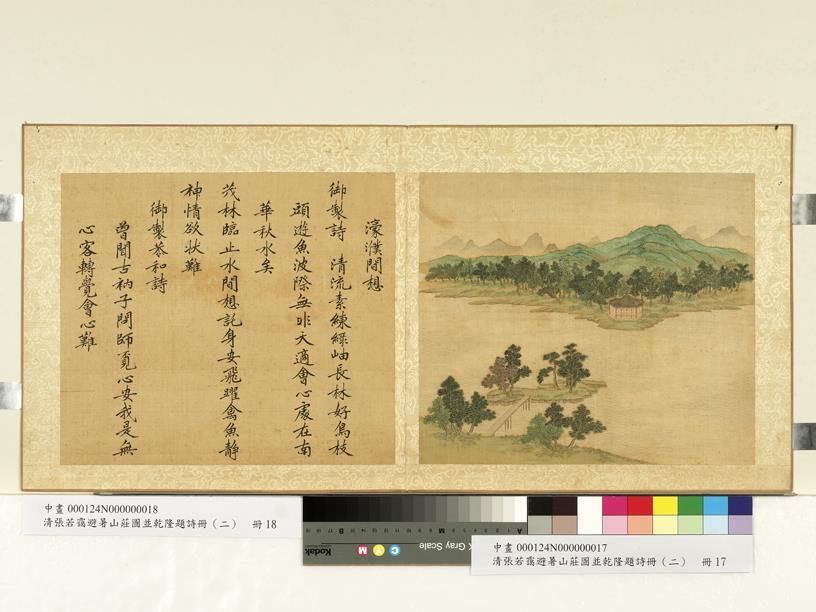 濠濮間想
御製詩 清流素練綠岫長林好鳥枝
頭遊魚波際無非天適會心處在南
華秋水矣
茂林臨止水間想託身安飛躍禽魚靜
神情欲狀難
御製恭和詩
曾聞古衲子問師覓心安我是無
心客轉覺會心難
中畫 000124N000000018
清張若靄避暑山莊圖並乾隆題詩冊(二) 冊 18
Kodak
M Y C
Gray Scale
B M A
中畫 000124N000000017
清張若靄避暑山莊圖並乾隆題詩冊(二) 冊 17